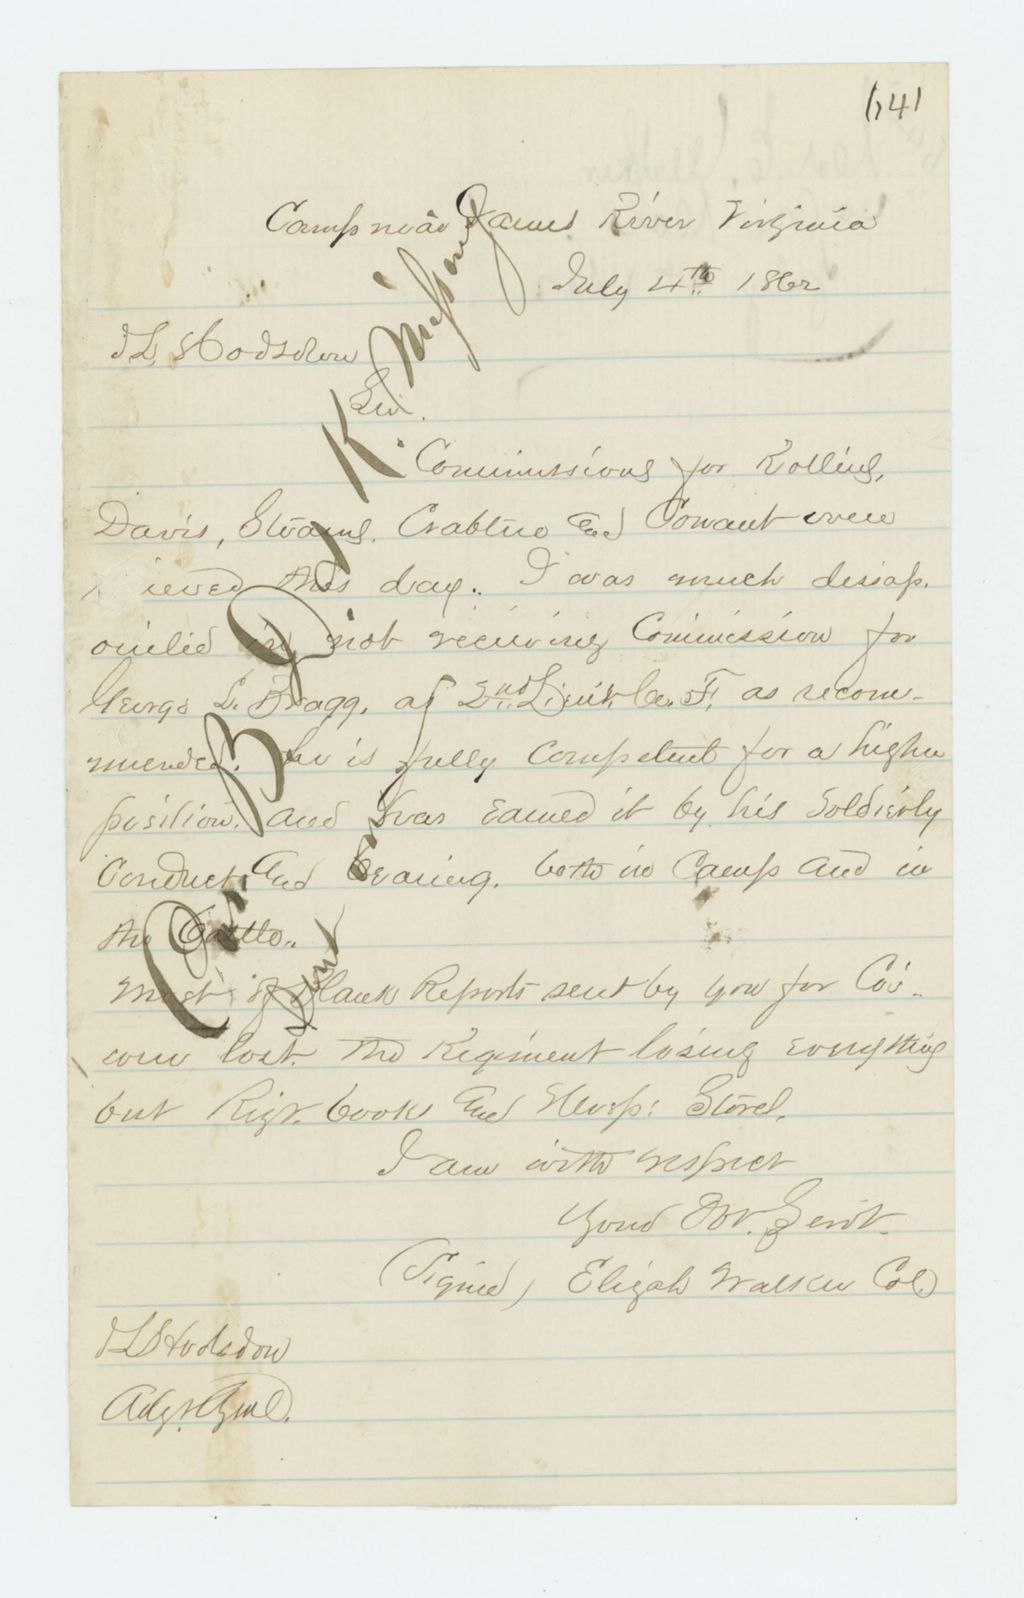 641
Camp near James River Virginia
July 4th 1862
J L Hodsdon
Sir.
Commissions for Rollins,
Davis, Stearns, Crabtree and Conant were
ieved this day. I was much disap.
ointed in not receiving Commission for
George L. Bragg, as 2nd Lieut. Co. F. as recom-
mended. he is fully Competent for a higher
position. and has earned it by his Soldierly
Conduct and bearing. both in Camp and in
the battle.
Most of Blank Reports sent by you for Co's
were lost. The Regiment losing everything
but Regt. books and Hosp: Stores.
I am with respect
Your Obt. Servt.
(Signed) Elijah Walker Col.
J L Hodsdon
Adjt Genl.